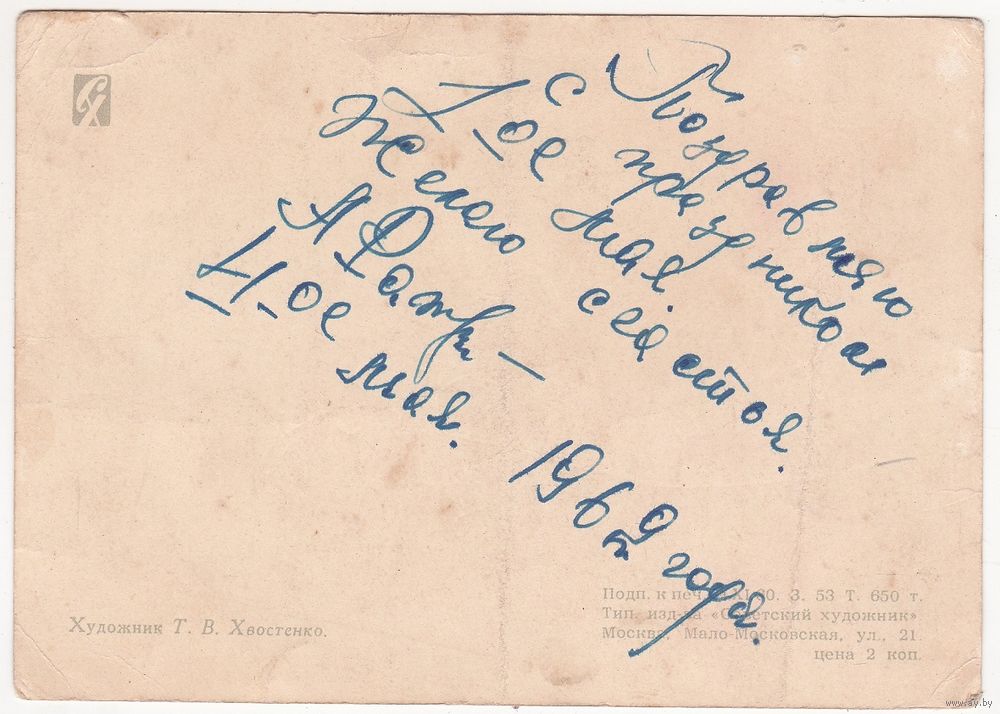 Поздравляю
с праздником
1-ое мая.
Желаю счастья.
А
1-ое мая. года.
Художник Т. В. Хвостенко.
Подп. к печ. XI-60. З. 53 Т. 650 т.
Тип. изд-ва «Советский художник»
Москва, Мало-Московская, ул., 21.
цена 2 коп.
www.ay.by